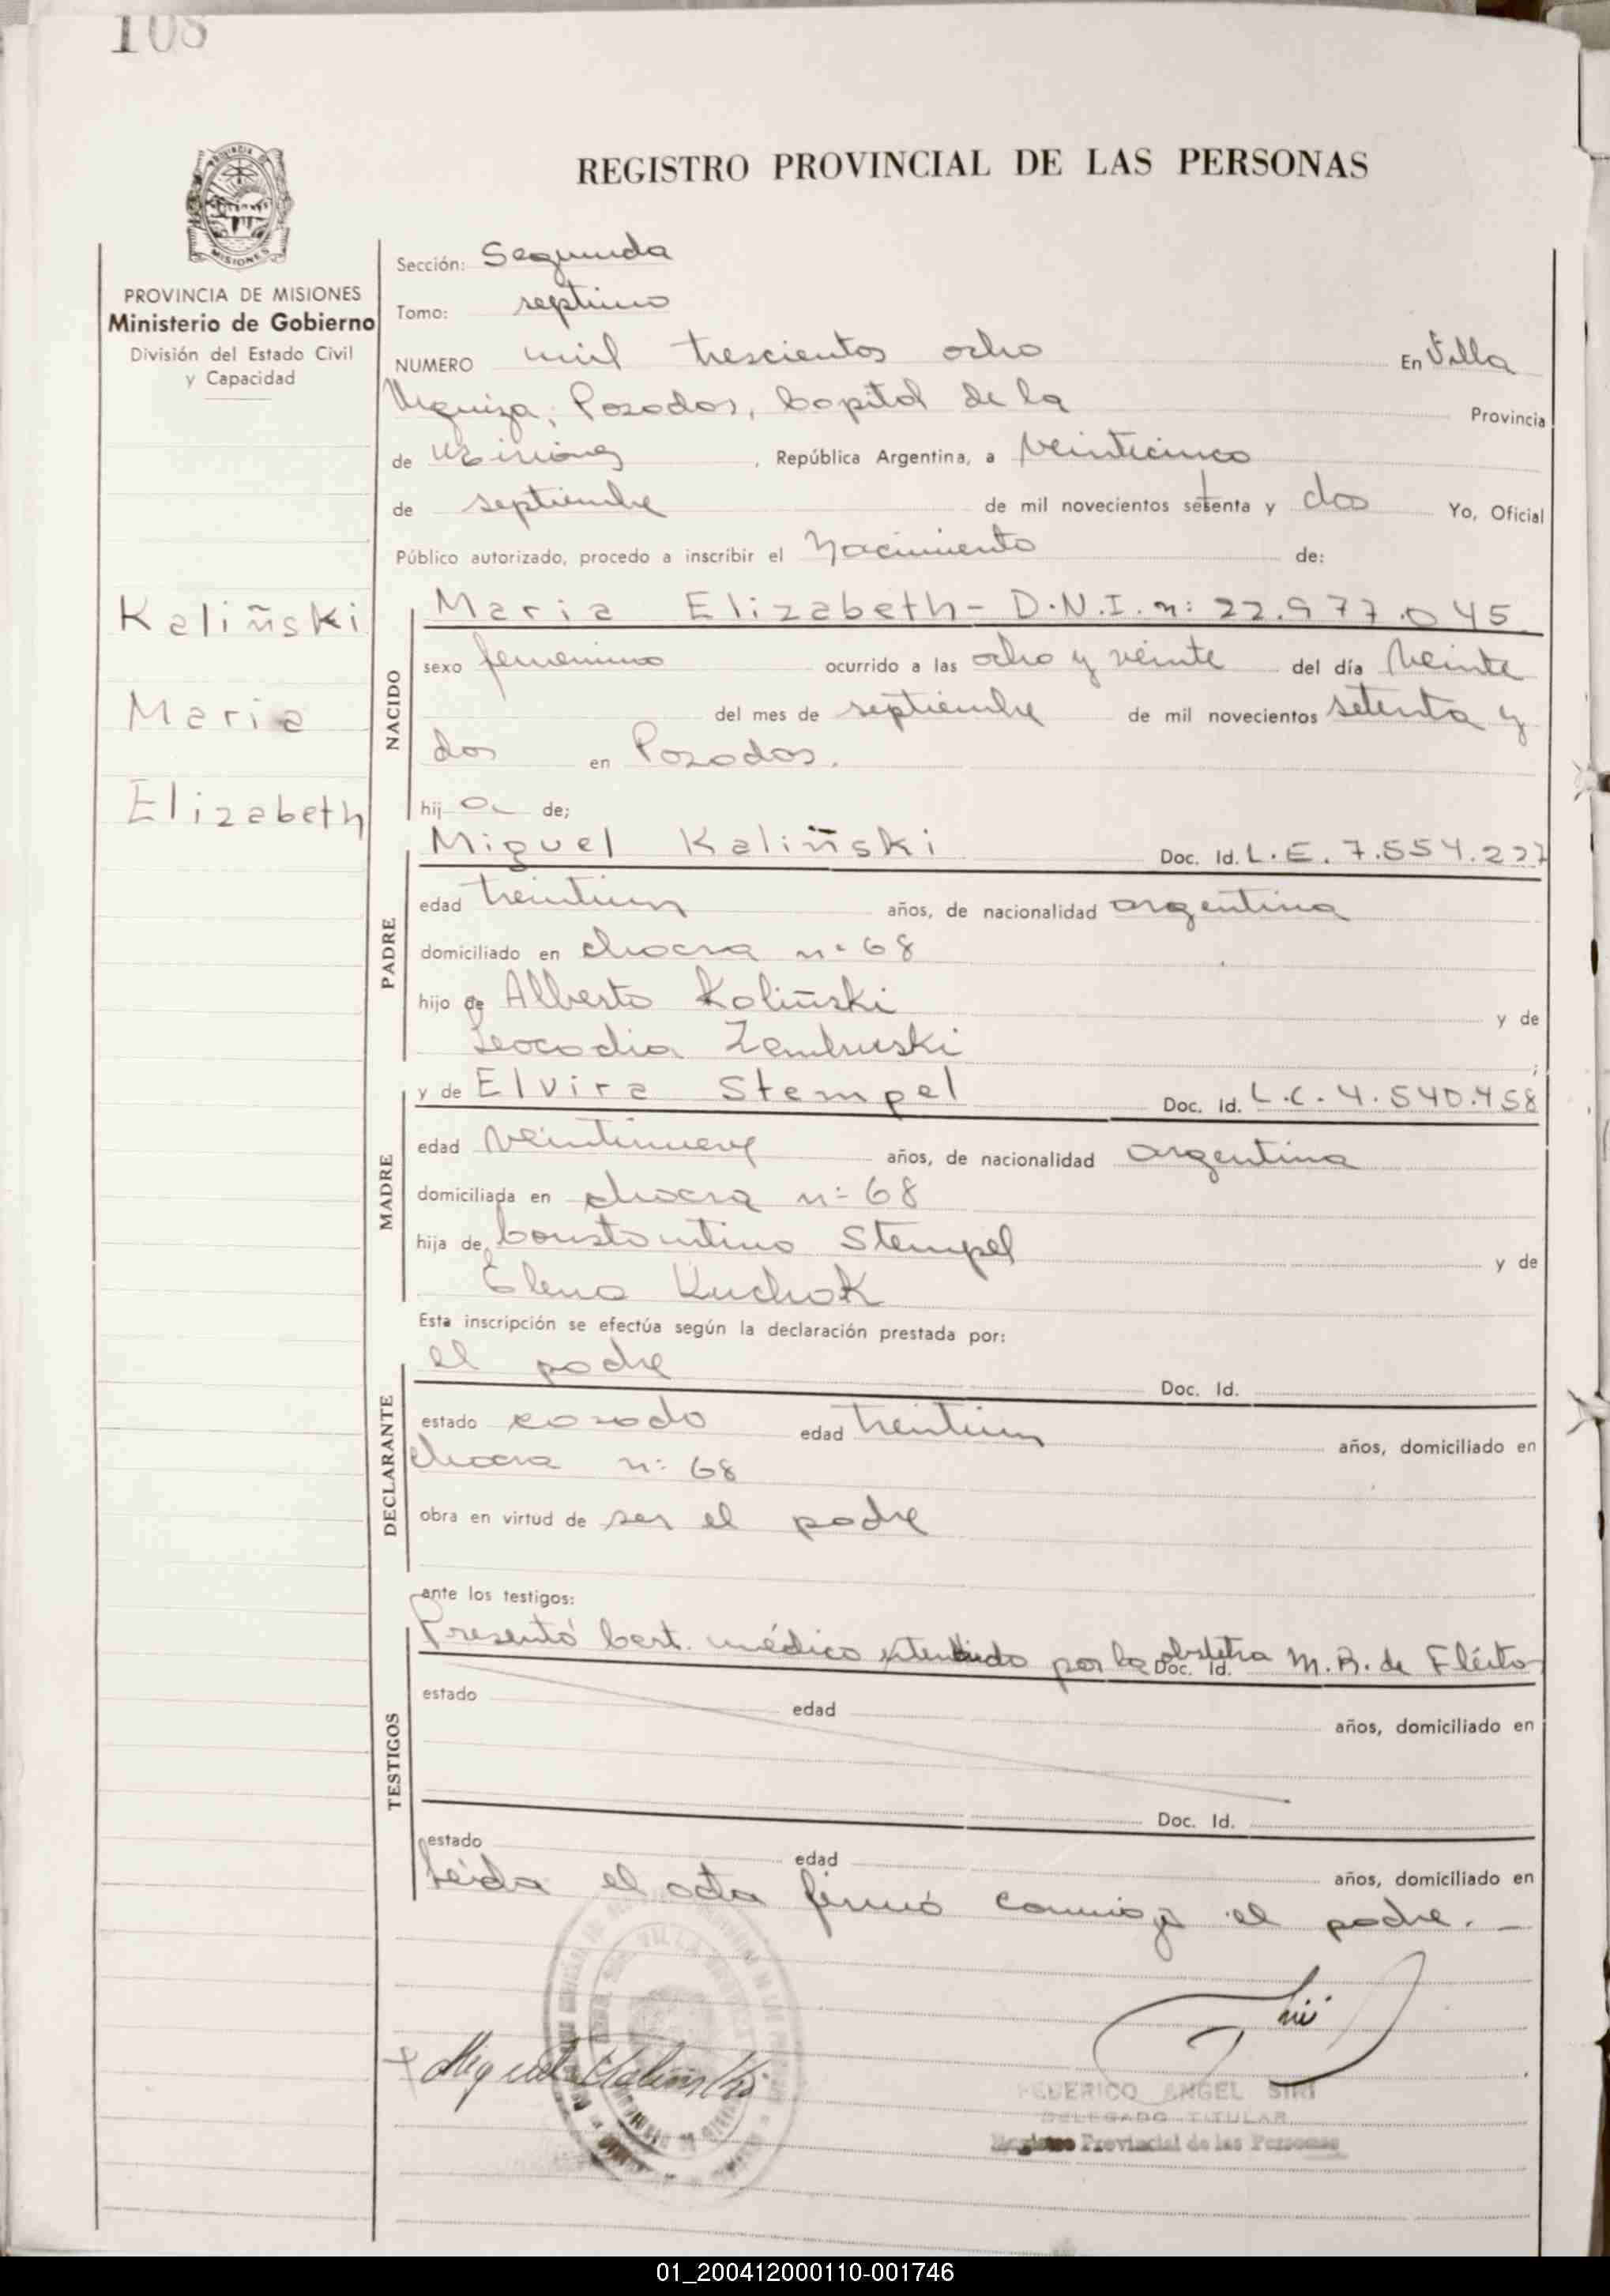 108
REGISTRO PROVINCIAL DE LAS PERSONAS
PROVINCIA DE
MISIONES
PROVINCIA DE MISIONES
Ministerio de Gobierno
División del Estado Civil
y Capacidad
Kaliñski
Maria
Elizabeth
Sección: Segunda
Tomo: septimo
NUMERO mil trescientos ocho En Villa
Urquiza, Posadas, Capital de la Provincia
de Misiones, República Argentina, a veinticinco
de septiembre de mil novecientos setenta y dos Yo, Oficial
Público autorizado, procedo a inscribir el Nacimiento de:
NACIDO
Maria Elizabeth- D.N.I. n: 22.977.045
sexo femenino ocurrido a las ocho y veinte del día veinte
del mes de septiembre de mil novecientos setenta y
dos en Posadas.
hij a de;
PADRE
Miguel Kaliñski Doc. Id. L.E. 7.554.227
edad treintiun años, de nacionalidad argentina
domiciliado en chacra n: 68
hijo de Alberto Kaliñski y de
Leocadia Zembruski ;
MADRE
y de Elvira Stempel Doc. Id. L.C. 4.540.458
edad veintinueve años, de nacionalidad argentina
domiciliada en chacra n: 68
hija de Constantino Stempel y de
Elena Kuchak
Esta inscripción se efectúa según la declaración prestada por:
DECLARANTE
el padre Doc. Id.
estado casado edad treintiun años, domiciliado en
chacra n: 68
obra en virtud de ser el padre
ante los testigos:
TESTIGOS
Presentó Cert. médico extendido por la obstetra M. B. de Fleita
Doc. Id.
estado edad años, domiciliado en
Doc. Id.
estado edad años, domiciliado en
Leída el acta firmó conmigo el padre. -
Miguel Kaliñski
FEDERICO ANGEL SIRI
DELEGADO TITULAR
Registro Provincial de las Personas
01_200412000110-001746